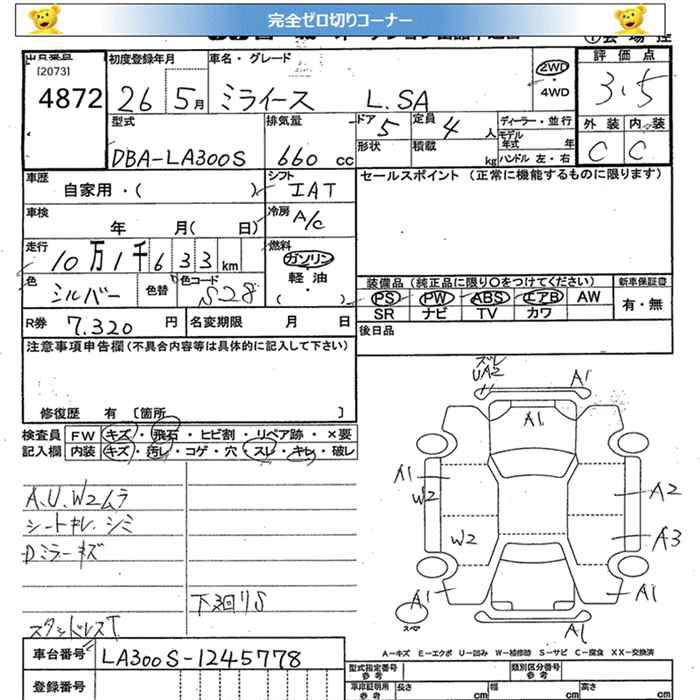 完全ゼロ切りコーナー
[2073]
4872
初度登録年月
26 5月
車名・グレード
ミライース L.SA
2WD
・
4WD
評価点
3.5
外装 内装
C C
型式
DBA-LA300S
排気量
660 cc
ドア 5
定員 4 人
形状
積載 kg
ディーラー・並行
モデル年式 年
ハンドル 左・右
車歴
自家用・( )
シフト
IAT
車検
年 月( 日)
冷房
A/c
走行
10万1千633km
燃料
ガソリン
・
軽油
( )
色
シルバー
色替
色コード
S28
R券 7,320 円
名変期限 月 日
セールスポイント (正常に機能するものに限ります)
装備品 (純正品に限り○をつけてください)
新車保証書
PS PW ABS エアB AW
有・無
SR ナビ TV カワ
後日品
注意事項申告欄(不具合内容等は具体的に記入して下さい)
修復歴 有 [箇所 ]
検査員 FW キズ・飛石・ヒビ割・リペア跡・×要
記入欄 内装 キズ・汚レ・コゲ・穴・スレ・キレ・破レ
A、U、W2ムラ
シートキレ、シミ
Dミラーキズ
下廻りS
スタッドレスT
ズレ
UA2
A1
A1
A1
W2
A2
W2
A3
A1
A1
A1
スペア
A-キズ E-エクボ U-凹み W-補修跡 S-サビ C-腐食 XX-交換済
車台番号 LA300S-1245778
登録番号
型式指定番号
参考
類別区分番号
参考
車庫証明用
参考
長さ cm
幅 cm
高さ cm